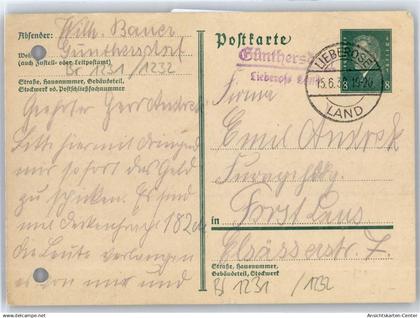 Absender: Wilh. Bauer
Günthersdorf
Wohnort
(auch Zustell- oder Leitpostamt)
Br 1231 / 1232
Straße, Hausnummer, Gebäudeteil,
Stockwerk od. Postschließfachnummer
Geehrter Herr Andrek
Bitte hiermit dringend
mir sofort das Geld
zu schicken. Es sind
182
die Leute verlangen
es von mir und
Postkarte
Günthersdorf
Lieberose Land
LIEBEROSE
15.6.3 19-20
LAND
8
Firma
Emil Andrek
in Forst Laus
Elsässerstr. 7.
Straße, Hausnummer,
Gebäudeteil, Stockwerk
Br 1231 / 1232
www.Ansichtskarten-Center.de